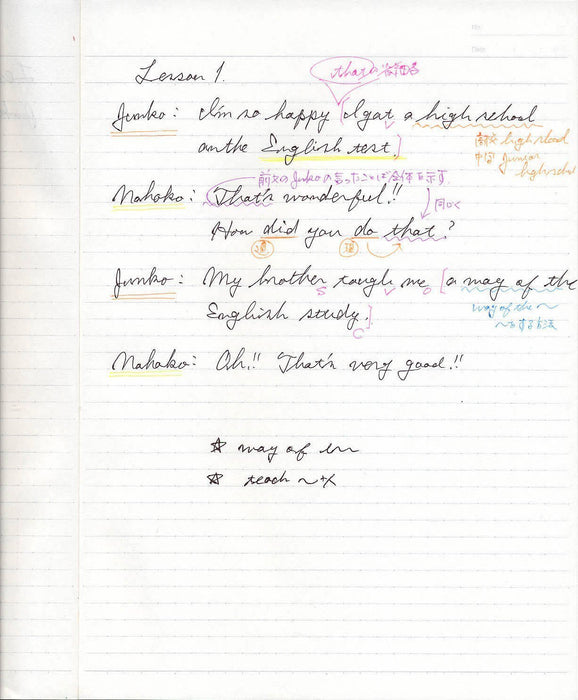 No.
Date
Lesson 1.
thatの省略
Junko: I'm so happy [I got a high school
on the English test.]
高校 high school
中学 junior
high school
前文のJunkoの言ったことば全体を示す
Nahoko: That's wonderful!!
同じく
How did you do that?
過
Junko: My brother taugh me [a way of the
S V O
English study.]
C
way of the ~
~する方法
Nahoko: Oh!! That's very good!!
☆ way of
☆ teach ~+